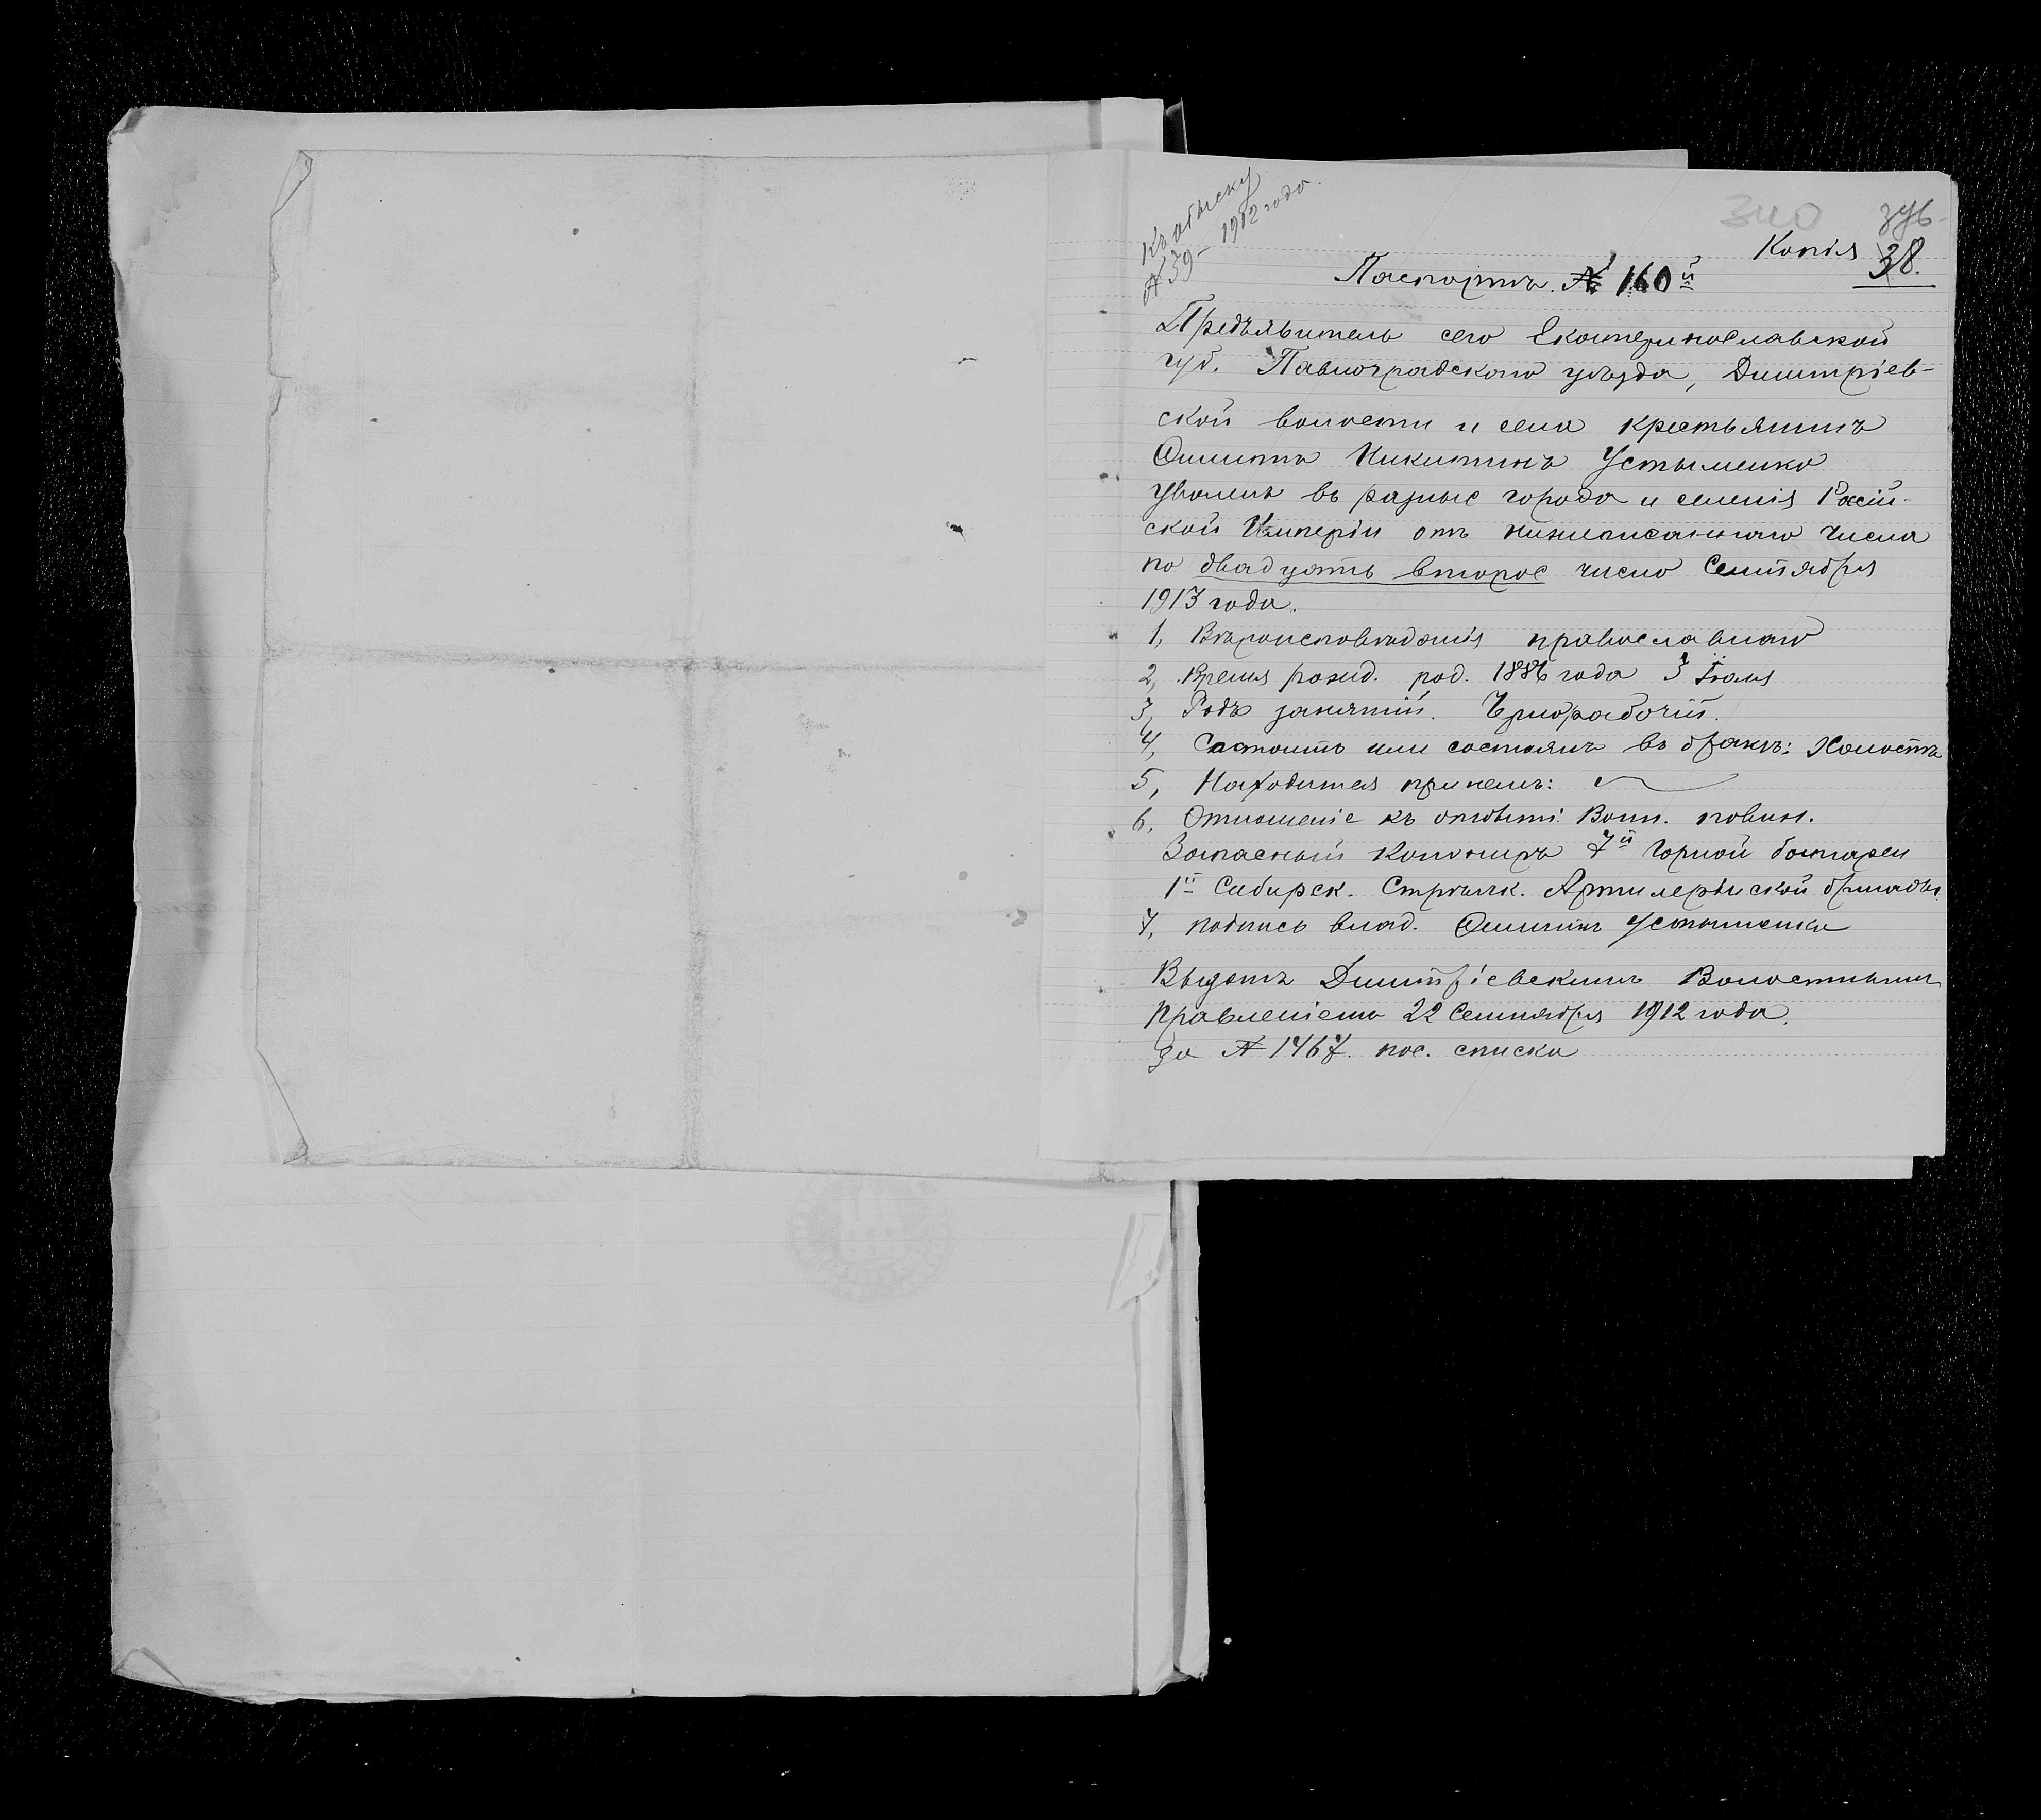 Къ обыску
№ 39 – 1912 года.
340
Копія 38.
Паспортъ. № 160й
Предъявитель сего Екатеринославской
губ. Павлоградскаго уѣзда, Дмитріев-
ской волости и села крестьянинъ
Никитинъ Устименко
уволенъ въ разные города и селенія Росій-
ской Имперіи отъ нижеписаннаго числа
по двадцать второе число Сентября
1913 года.
1, Вѣроисповѣданія православнаго
2, Время рожд. род. 1886 года 3 Іюля
3, Родъ занятій. Чрнорабочій.
4, Состоитъ или состоялъ въ бракѣ: Холостъ
5, Находится при немъ:
6, Отношеніе къ отбыті Воин. повин.
Запасный Канониръ 7й Горной батареи
1й Сибирск. Стрѣлк. Артилерійской бригады.
7, подпись влад. Устименко
Выданъ Дмитріевскимъ Волостнымъ
Правленіемъ 22 Сентября 1912 года.
за № 1467. пос. списка